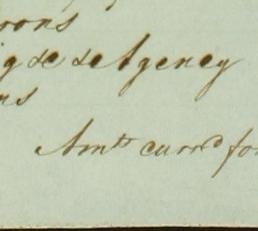 oons
g &c &c Agency
ns
Amts. carrd. for